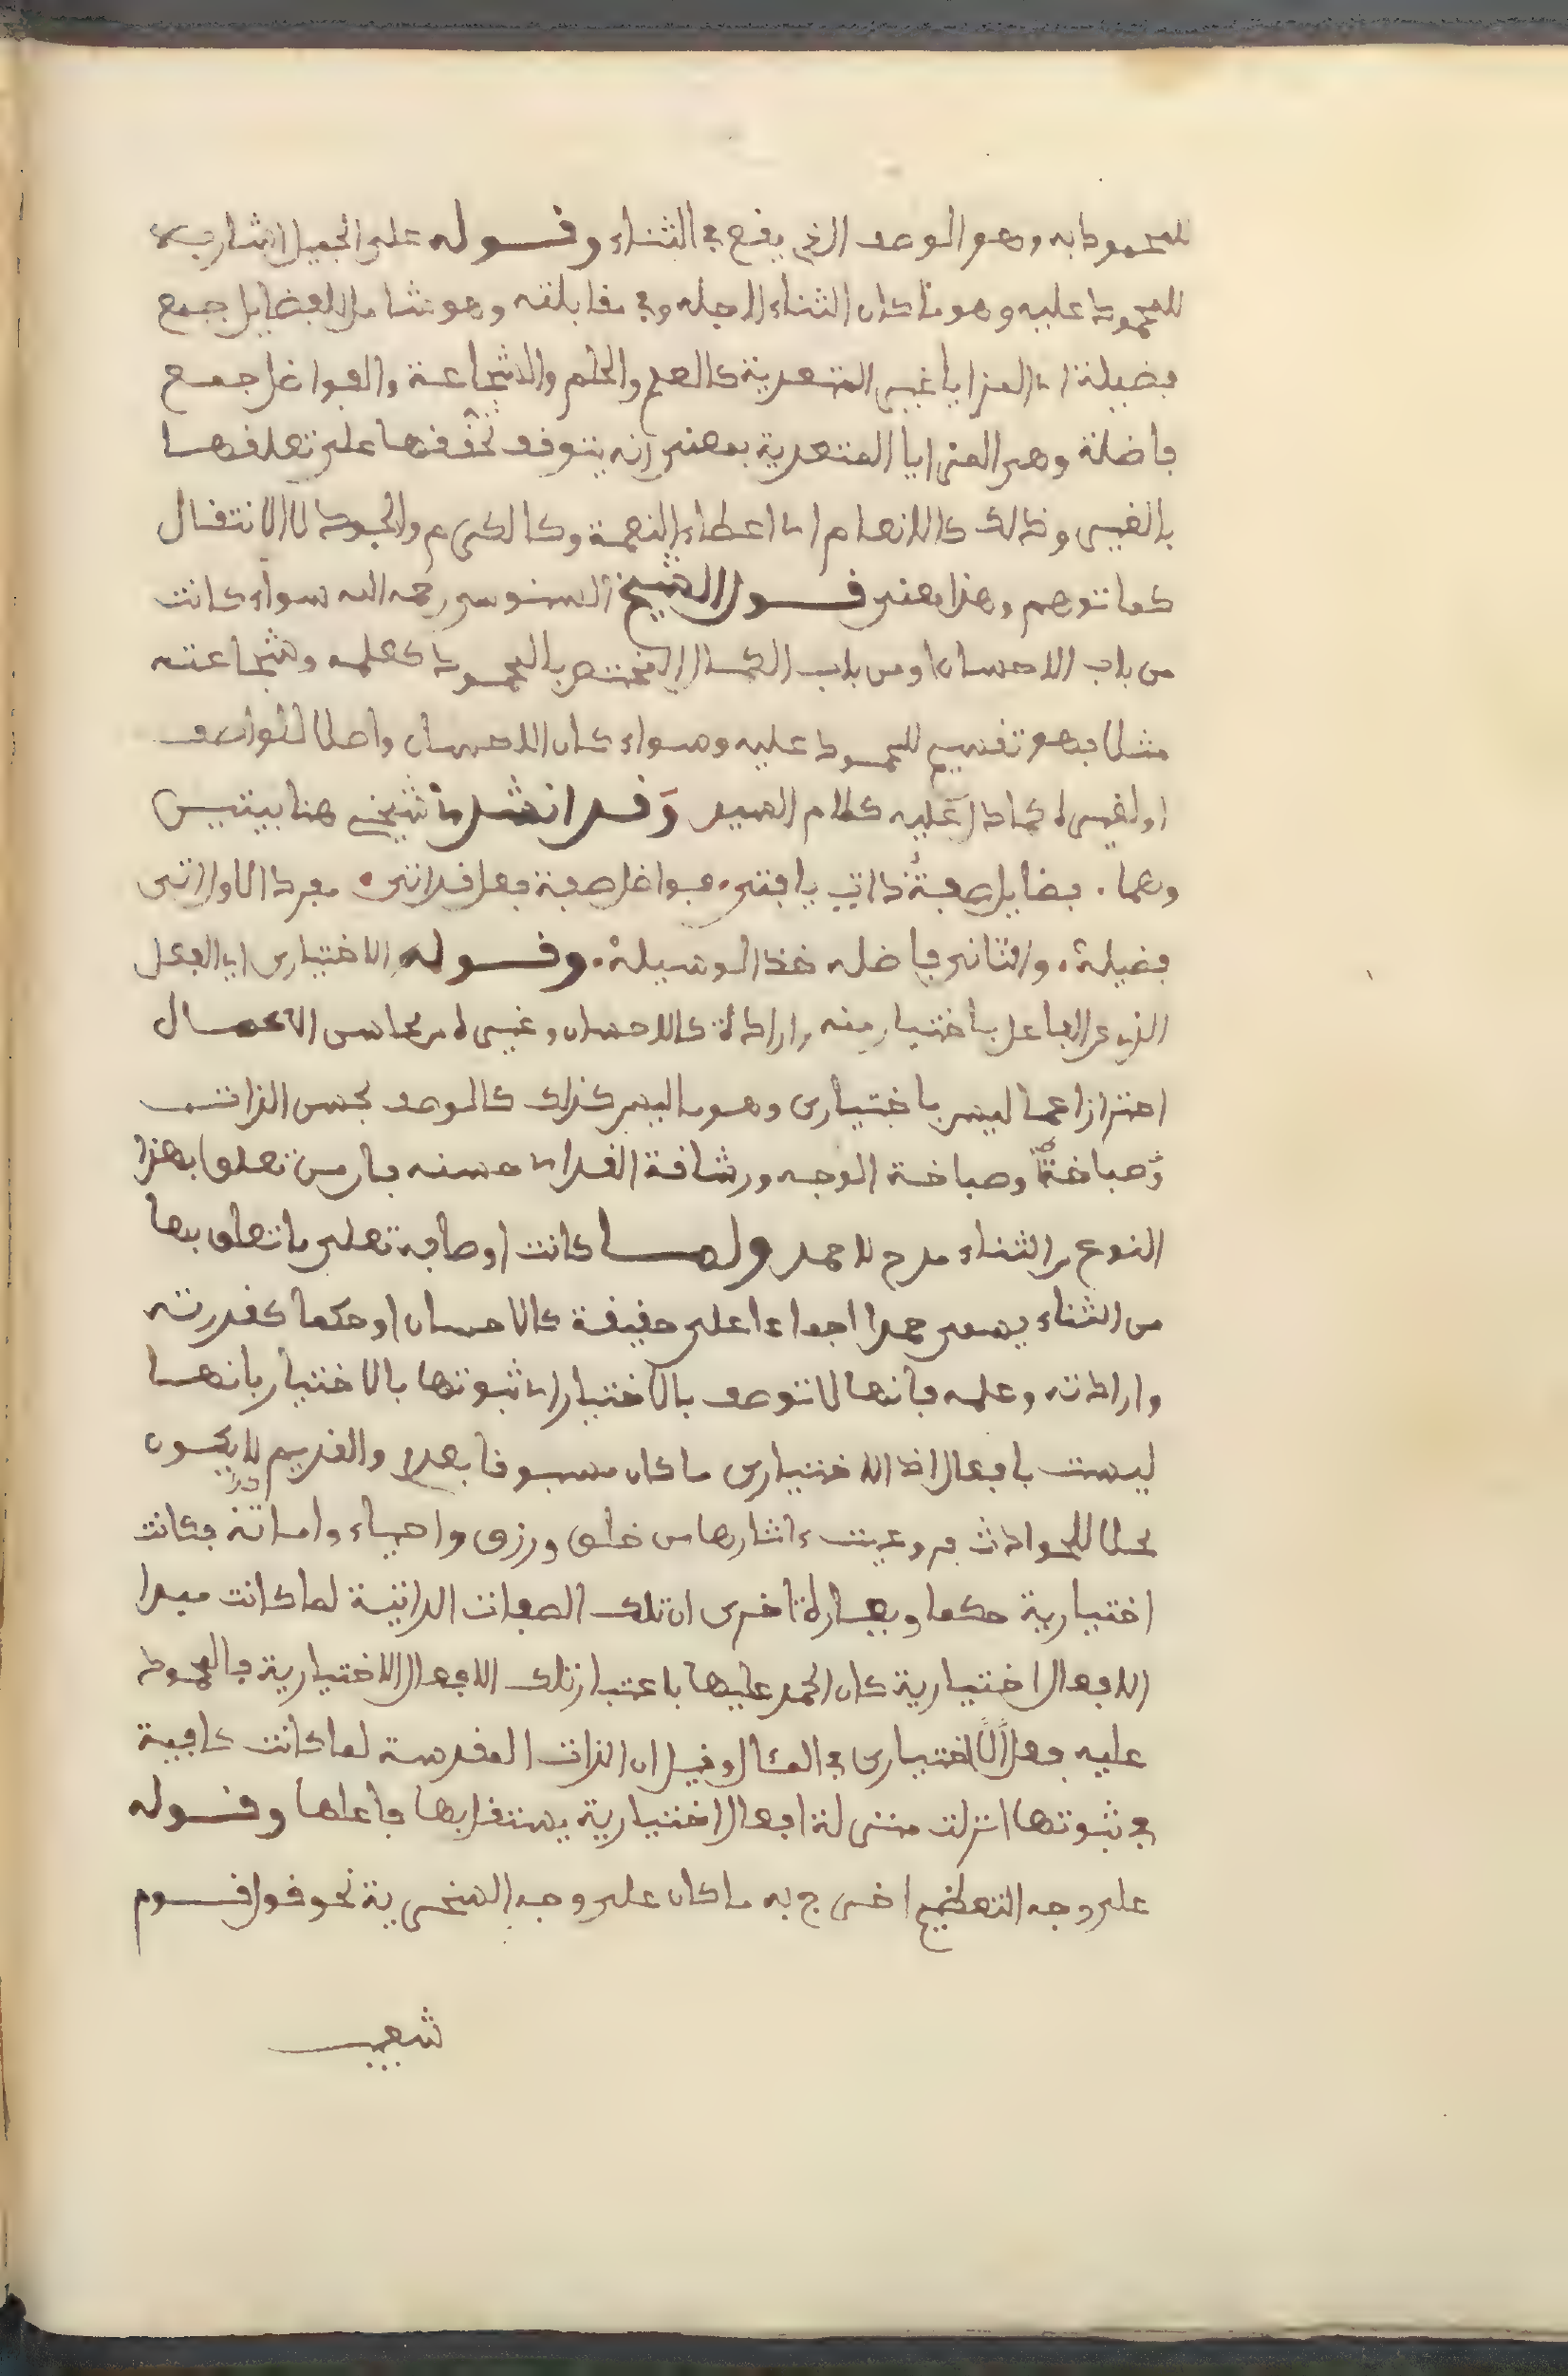 للمحمود به وهو الوصف الذي يقع في الثناء وقوله على الجميل اشار به
للمحمود عليه وهو ما كان الثناء لاجله وفي مقابلته وهو شامل للفضايل جمع
فضيلة اي المزايا غير المتعدية كالعلم والحلم والشجاعة والفواضل جمع
فاضلة وهي المزايا المتعدية بمعنى انه يتوقف تحققها على تعلقها
بالغير وذلك كالانعام اي اعطاء النعمة وكالكرم والجود لا الانتقال
كما توهم وهذا معنى قول الشيخ السنوسي رحمه الله سواء كانت
من باب الاحسان او من باب الكمال المختص بالمحمود كعلمه وشجاعته
مثلا فهو تقسيم للمحمود عليه وسواء كان الاحسان واصلا للواصف
او لغيره كما دل عليه كلام السيد وقد انشدنا شيخي هنا بيتين
وهما . فضايل صفة ذات يا فتى . فواضل صفة فعل قد اتى . مفرد الاول اتى
فضيلة . والثاني فاضله خذ الوسيلة . وقوله الاختياري اي الفعل
الذي عن الفاعل باختيار منه وارادة كالاحسان وغيره من محاسن الاعمال
احترازا عما ليس باختياري وهو ما ليس كذلك كالوصف بحسن الذات
وصباخة وصباخة الوجه ورشاقة القد اي حسنه فان من تعلق بهذا
النوع من الثناء مدح لا حمد ولما كانت اوصافه تعلى ما تعلق بها
من الثناء يسمى حمدا اجماعا على حقيقة كالاحسان او حكما كقدرته
وارادته وعلمه فانها لا توصف بالاختيار اي ثبوتها بالاختيار بانها
ليست بافعال اذ الاختياري ما كان مسبوقا بعدم والقديم لا يكون
محلا للحوادث فروعيت ءاثارها من خلق ورزق واحياء واماتة فكانت
اختيارية حكما وبعبارة اخرى ان تلك الصفات الذاتية لما كانت مبدا
الافعال اختيارية كان الحمد عليها باعتبار تلك الافعال الاختيارية فالمحمود
عليه فعل الاختياري في المئال وقيل ان الذات المقدسة لما كانت كافية
في ثبوتها انزلت منزلة افعال اختيارية يستقل بها فاعلها وقوله
على وجه التعظيم اخرج به ما كان على وجه السخرية نحو قول قوم
شعيب